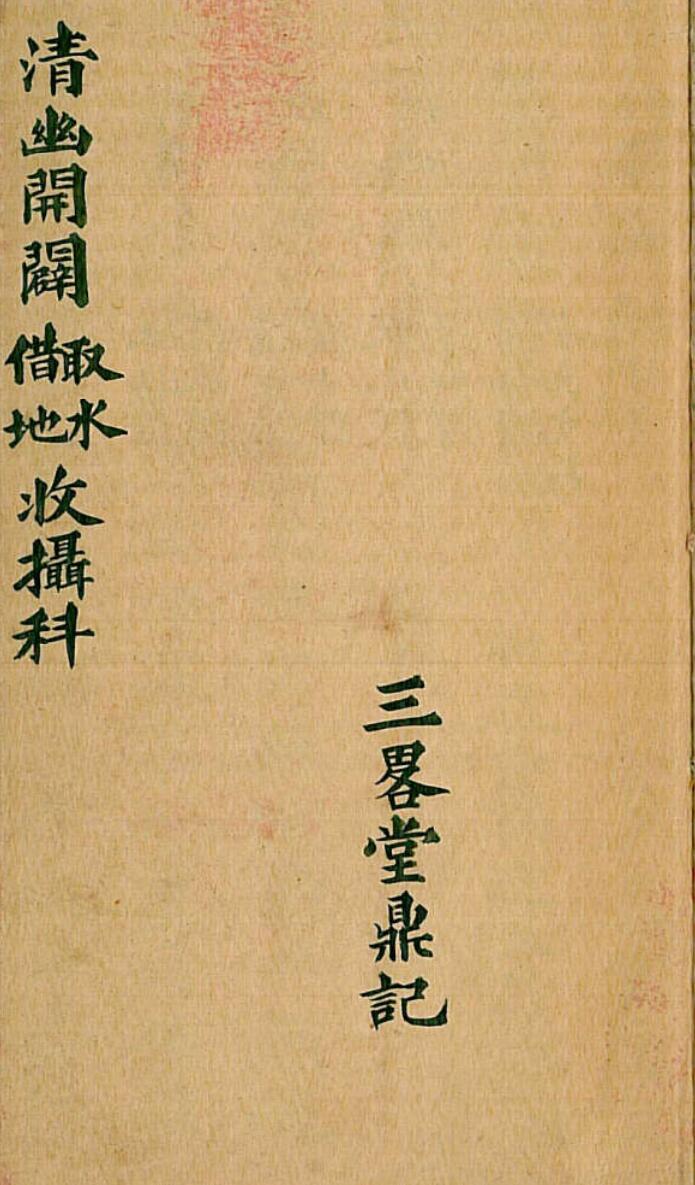 三畧堂鼎記
清幽開闢取水借地收攝科